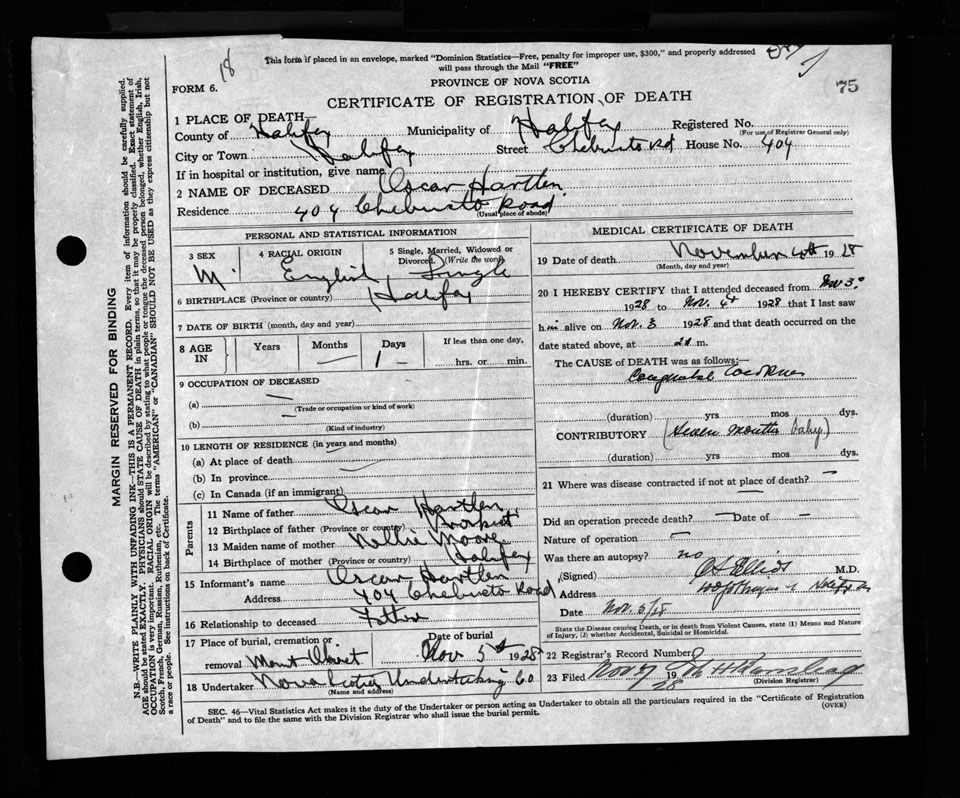 18
This form if placed in an envelope, marked "Dominion Statistics—Free, penalty for improper use, $300," and properly addressed
will pass through the Mail "FREE"
FORM 6.
PROVINCE OF NOVA SCOTIA
75
CERTIFICATE OF REGISTRATION OF DEATH
1 PLACE OF DEATH
County of Halifax Municipality of Halifax Registered No.
(For use of Registrar General only)
City or Town Halifax Street Chebucto Rd House No. 404
If in hospital or institution, give name
2 NAME OF DECEASED Oscar Hartlen
Residence 404 Chebucto Road
(Usual place of abode)
PERSONAL AND STATISTICAL INFORMATION
3 SEX 4 RACIAL ORIGIN 5 Single, Married, Widowed or
Divorced. (Write the word)
M English Single
6 BIRTHPLACE (Province or country) Halifax
7 DATE OF BIRTH (month, day and year)
8 AGE IN Years Months Days If less than one day,
— 1 — hrs. or min.
9 OCCUPATION OF DECEASED
(a) —
(Trade or occupation or kind of work)
(b) —
(Kind of industry)
10 LENGTH OF RESIDENCE (in years and months)
(a) At place of death
(b) In province
(c) In Canada (if an immigrant)
Parents
11 Name of father Oscar Hartlen
12 Birthplace of father (Province or country)
13 Maiden name of mother Nellie Moore
14 Birthplace of mother (Province or country) Halifax
15 Informant's name Oscar Hartlen
Address 404 Chebucto Road
16 Relationship to deceased Father
17 Place of burial, cremation or Date of burial
removal Mount Olivet Nov 5th 1928
18 Undertaker Nova Scotia Undertaking Co
(Name and address)
MEDICAL CERTIFICATE OF DEATH
19 Date of death November 4th 1928
(Month, day and year)
20 I HEREBY CERTIFY that I attended deceased from Nov 3
1928 to Nov. 4 1928 that I last saw
him alive on Nov. 3 1928 and that death occurred on the
date stated above, at m.
The CAUSE OF DEATH was as follows:—
(duration) yrs mos dys.
CONTRIBUTORY (Seven months baby)
(duration) yrs. mos. dys.
21 Where was disease contracted if not at place of death? —
—
Did an operation precede death? — Date of —
Nature of operation —
Was there an autopsy? no
(Signed) M.D.
Address
Date Nov. 5/28
State the Disease causing Death, or in death from Violent Causes, state (1) Means and Nature
of Injury, (2) whether Accidental, Suicidal or Homicidal.
22 Registrar's Record Number
23 Filed Nov 7 1928
(Division Registrar)
SEC. 46—Vital Statistics Act makes it the duty of the Undertaker or person acting as Undertaker to obtain all the particulars required in the "Certificate of Registration
of Death" and to file the same with the Division Registrar who shall issue the burial permit.
(OVER)
MARGIN RESERVED FOR BINDING
N.B.—WRITE PLAINLY WITH UNFADING INK—THIS IS A PERMANENT RECORD. Every item of information should be carefully supplied.
AGE should be stated EXACTLY. PHYSICIANS should STATE CAUSE OF DEATH in plain terms, so that it may be properly classified. Exact statement of
OCCUPATION is very important. RACIAL ORIGIN will be described by stating to what people or tongue the deceased person belonged, whether English, Irish,
Scotch, French, German, Russian, Ruthenian, etc. The terms "AMERICAN" or "CANADIAN" SHOULD NOT BE USED as they express citizenship but not
a race or people. See instructions on back of Certificate.